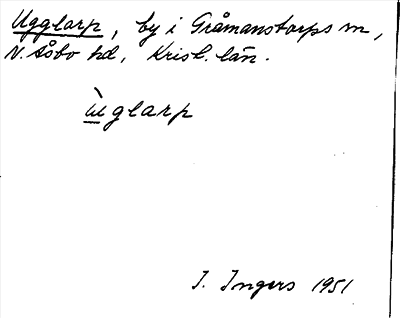 Ugglarp, by i Gråmanstorps sn,
N. Åsbo hd, Krist. län.
ùglarp
I. Ingers 1951